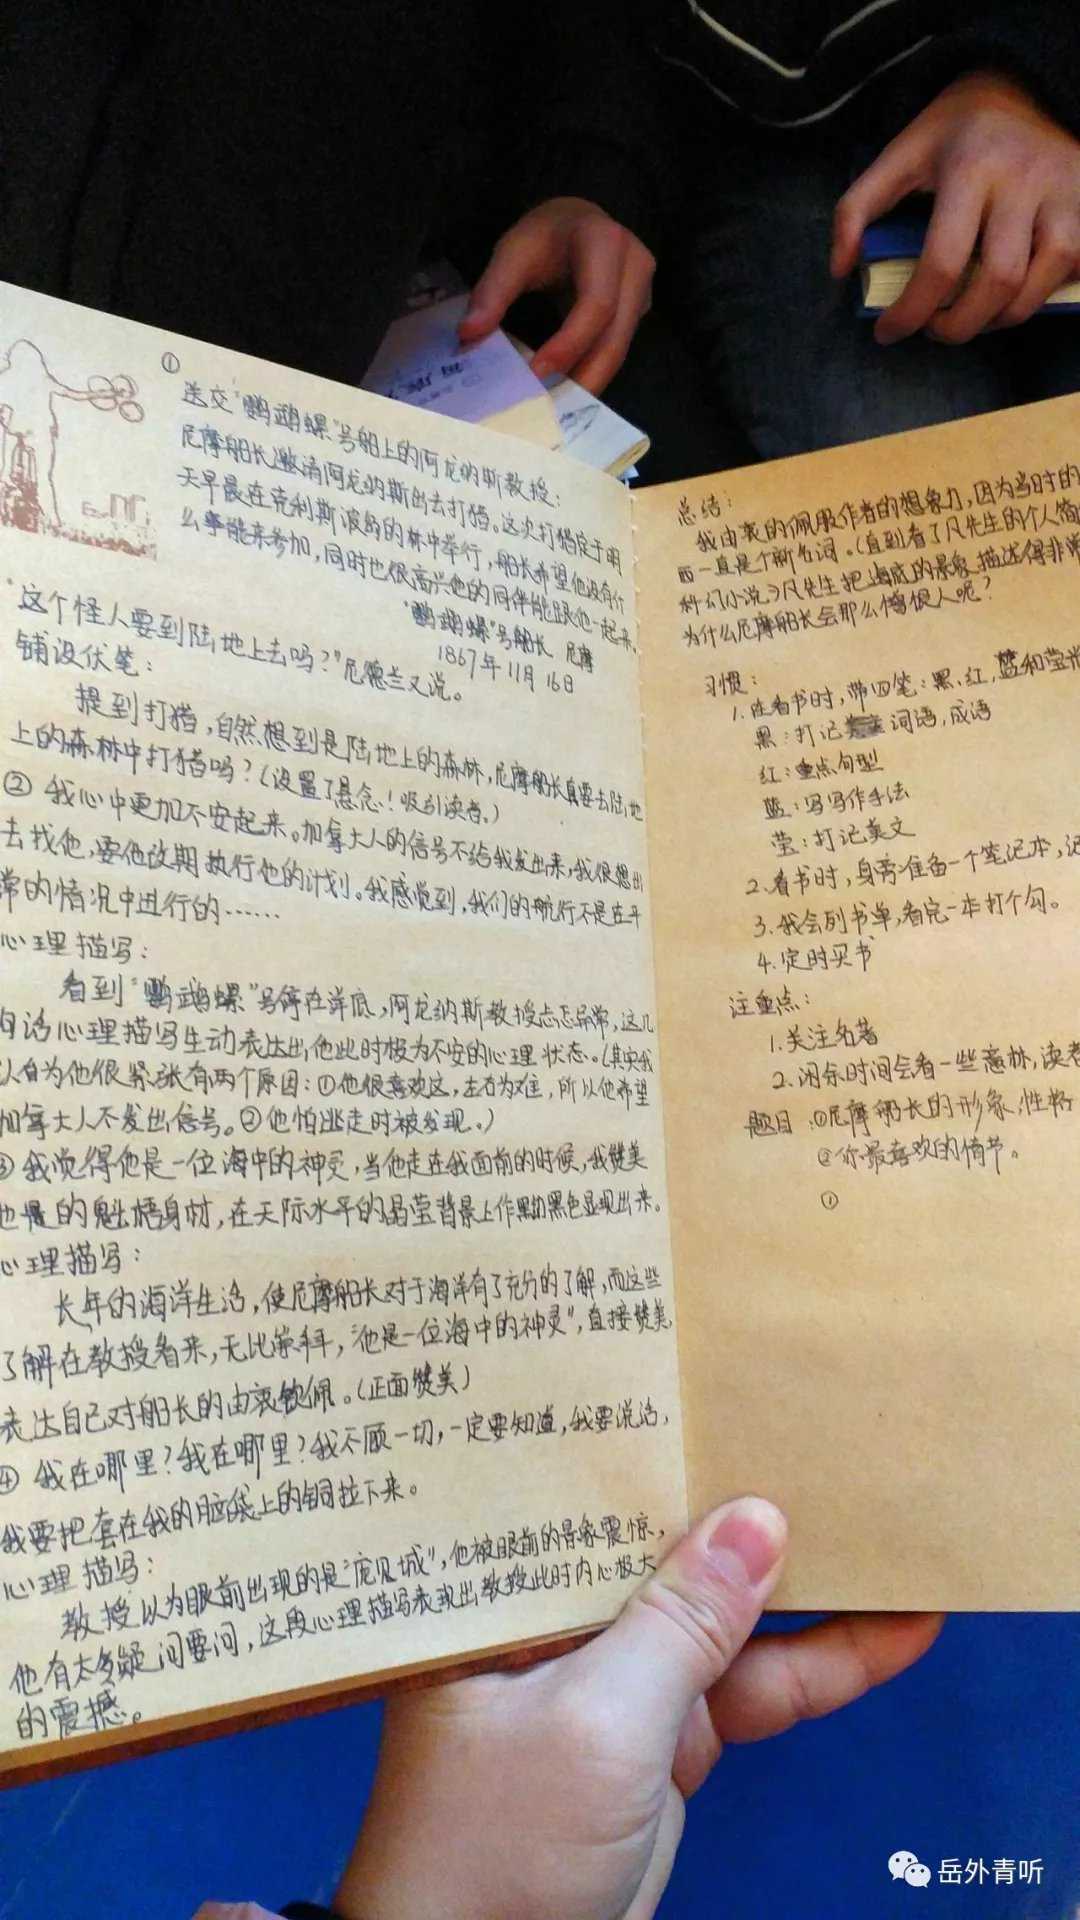 ①
送交“鹦鹉螺”号船上的阿龙纳斯教授：
尼摩船长邀请阿龙纳斯出去打猎。这次打猎定于明
天早晨在克利斯波岛的林中举行，船长希望他没有什
么事能来参加，同时也很高兴他的同伴能跟他一起来。
“鹦鹉螺”号船长 尼摩
1867年11月16日
“这个怪人要到陆地上去吗？”尼德兰又说。
铺设伏笔：
提到打猎，自然想到是陆地上的森林，尼摩船长真要去陆地
上的森林中打猎吗？（设置了悬念！吸引读者。）
② 我心中更加不安起来。加拿大人的信号不给我发出来，我很想出
去找他，要他改期执行他的计划。我感觉到，我们的航行不是在平
常的情况中进行的……
心理描写：
看到“鹦鹉螺”号停在洋底，阿龙纳斯教授忐忑异常，这几
句话心理描写生动表达出他此时极为不安的心理状态。（其实我
认为他很紧张有两个原因：①他很喜欢这，左右为难，所以他希望
加拿大人不发出信号。②他怕逃走时被发现。）
③ 我觉得他是一位海中的神灵，当他走在我面前的时候，我赞美
他的魁梧身材，在天际水平的晶莹背景上作黝黑色显现出来。
心理描写：
长年的海洋生活，使尼摩船长对于海洋有了充分的了解，而这些
了解在教授看来，无比崇拜，“他是一位海中的神灵”，直接赞美，
表达自己对船长的由衷钦佩。（正面赞美）
④ 我在哪里？我在哪里？我不顾一切，一定要知道，我要说话，
我要把套在我的脑袋上的铜拉下来。
心理描写：
教授以为眼前出现的是“庞贝城”，他被眼前的景象震惊，
他有太多疑问要问，这段心理描写表现出教授此时内心极大
的震撼。
总结：
我由衷的佩服作者的想象力，因为当时的
西一直是个新名词。（直到看了凡先生的个人简
科幻小说）凡先生把海底的景象描述得非常
为什么尼摩船长会那么憎恨人呢？
习惯：
1.在看书时，带四笔：黑、红、蓝和莹光
黑：打记词语，成语
红：重点句型
蓝：写写作手法
莹：打记美文
2.看书时，身旁准备一个笔记本，记
3.我会列书单，看完一本打个勾。
4.定时买书
注重点：
1.关注名著
2.闲余时间会看一些意林，读者
题目：①尼摩船长的形象，性格
②你最喜欢的情节。
①
岳外青听